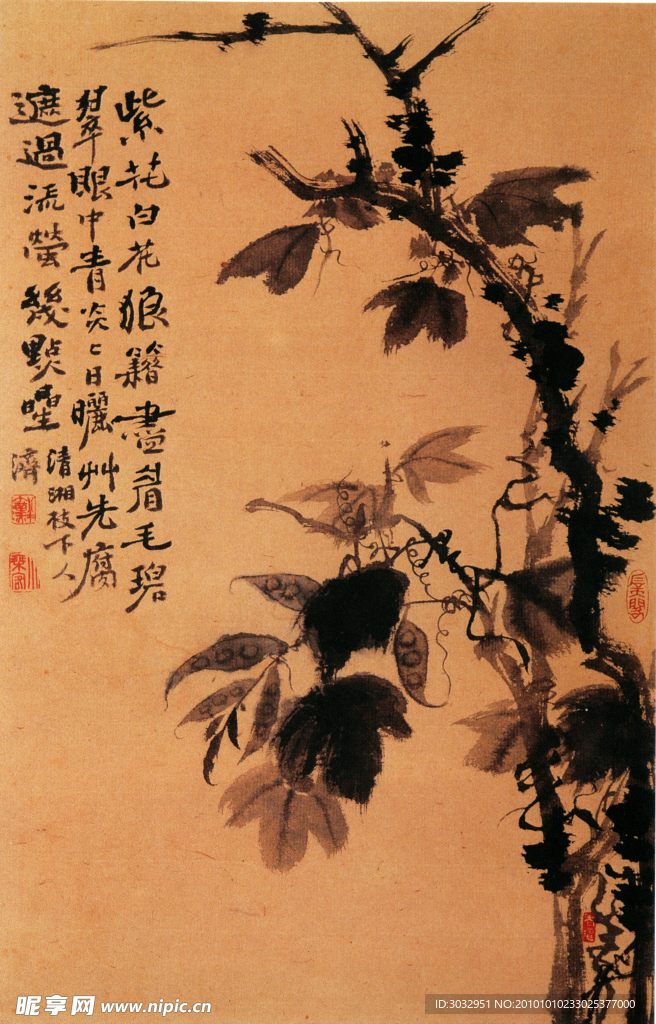 紫花白花狼籍盡眉毛碧
翠眼中青炎〻日曬艸先腐
遮過流螢幾點星
清湘枝下人
濟
昵享网 www.nipic.cn
ID:3032951 NO:20101010233025377000